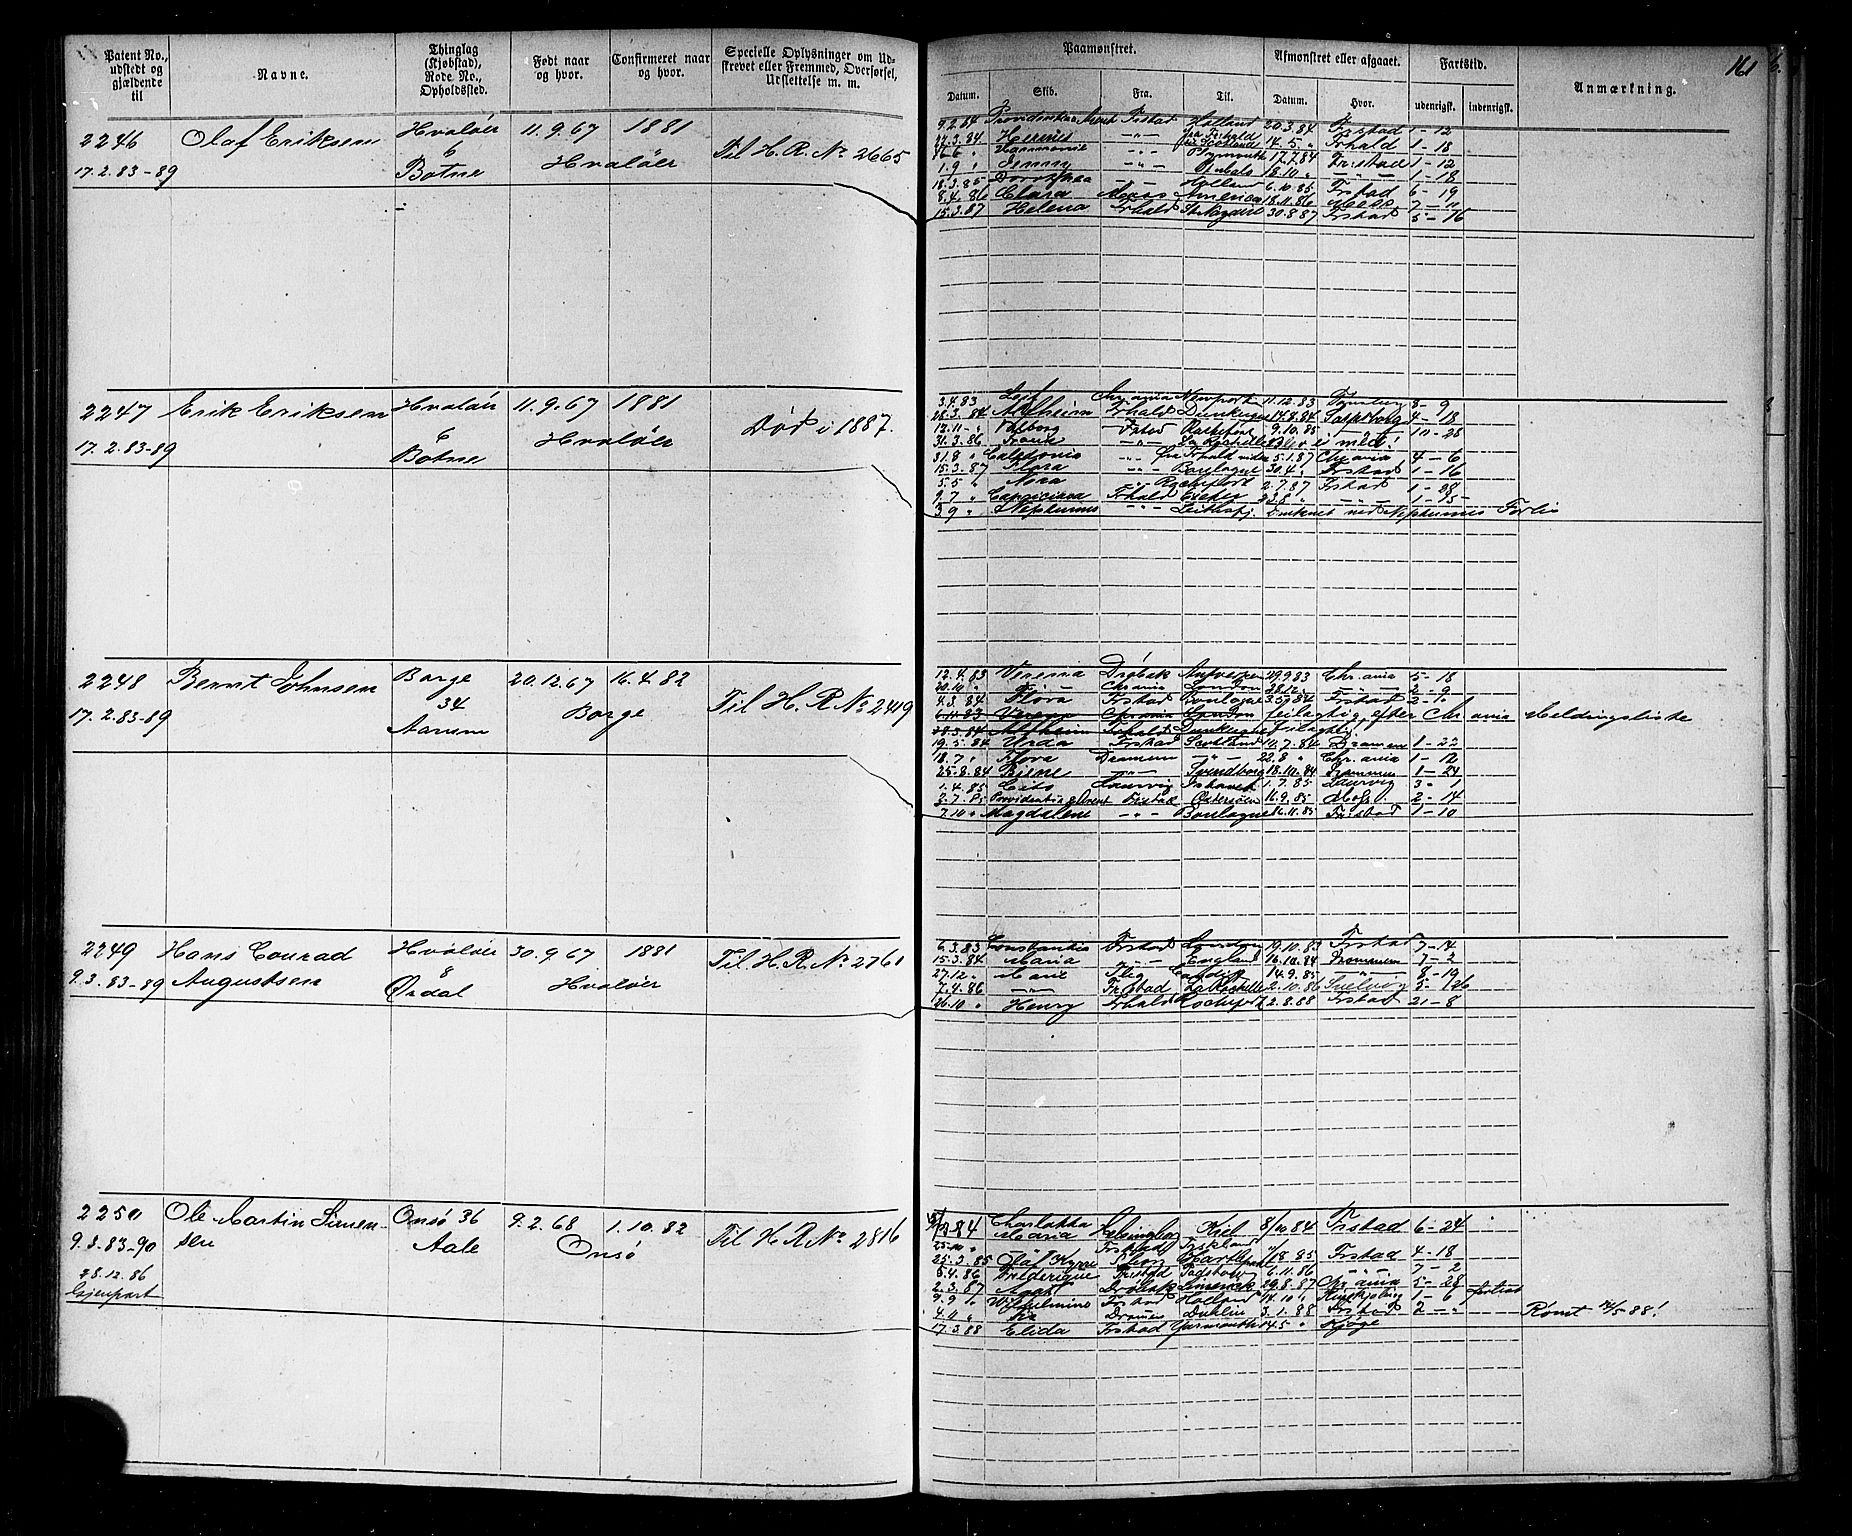 161
Patent No., udstedt og gjældende til
Navne.
Thinglag (Kjøbstad), Rode No., Opholdssted.
Født naar og hvor.
Confirmeret naar og hvor.
Specielle Oplysninger om Udskrevet eller Fremmed, Overførsel, Udslettelse m. m.
Paamønstret.
Afmønstret eller afgaaet.
Fartstid.
Anmærkning.
Datum. Skib. Fra. Til. Datum. Hvor. udenrigsk. indenrigsk.
2246 Olaf Eriksen Hvaløer 11.9.67 1881 Til H. R. No 2665
17.2.83-89 6 Botne Hvaløer
9.2.84 Frstad Holland 20.3.84 Frstad 1-12
Frhald 1-18
Plymouth 17.7.84 Fr.stad 1-12
1.9 " Jenny 18.10 " 1-18
18.3.85 Dorothea Holland 6.10.85 Frstad 6-19
8.4.86 Clara Moss America 18.11.86 Moss 7-11
15.3.87 Helena Frhald St. Nazaire 30.8.87 Frstad 5-16
2247 Erik Eriksen Hvaløer 11.9.67 1881 Død i 1887.
17.2.83-89 6 Botne Hvaløer
3.4.83 Leif Chr.ania Newport 11.12.83 8-9
28.3.84 Alfheim Frhald Dunkerque 14.8.84 Sarpsborg 4-18
Valborg Frstad 9.10.85 10-28
31.3.86 ei med!
31.8 " Caledonia 5.1.87 Chr.ania 4-6
15.3.87 Flora Boulogne 30.4 " Frstad 1-16
5.5 " Nora Rochefort 2.7.87 Frstad 1-28
9.7 " Frhald Exeter 23.8 " 1-15
3.9 " Neptunus druknet ved Neptunus Forlis
2248 Bernt Johnsen Borge 20.12.67 16.4.82 Til H. R. No 2419
17.2.83-89 34 Aarum Borge
12.4.83 Verena Drøbak Antwerpen 29.9.83 Chr.ania 5-18
20.10 " Chr.ania London 2-9
4.3.84 Flora Frstad Boulogne Frstad 2-1
6.11.83 Verena Chr.ania London feilagtig, efter Chr.ania Meldingsliste
28.3.84 Alfheim Frhald Dunkerque feilagtig.
19.5.84 Urda Frstad Scotland 14.7.84 Dramen 1-22
18.7 " Flora Dramen 22.8 " Chr.ania 1-12
25.8.84 Svendborg 18.10.84 Drammen 1-24
1.4.85 Laurvig Ishavet 1.7.85 Laurvig 3-1
2.7.85 Frstad Østersøen 16.9.85 Moss 2-14
7.10 " Magdalene Boulogne 16.11.85 Fr.stad 1-10
2249 Hans Conrad Augustsen Hvaløer 30.9.67 1881 Til H. R. No 2761
9.3.83-89 8 Ørdal Hvaløer
6.3.83 Constantia Frstad London 19.10.83 Frstad 7-14
15.3.84 Maria England 16.10.84 Drammen 7-2
27.12 " Marie Cardiff 14.9.85 8-19
7.4.86 Fr.stad La Rochelle 2.10.86 5-26
26.10 " Henry Frhald 2.8.88 Frstad 21-8
2250 Ole Martin Simensen Onsø 36 9.2.68 1.10.82 Til H. R. No 2816
9.3.83-90 Aale Onsø
28.12.86
Gjenpart
84 Charlotta Helsingborg Kiel 8/10 84 Frstad 6-24
25.10 " Maria Frstad Tyskland
25.3.85 Olaf Kyrre Hartlepool 85 Frstad 4-18
5.4.86 Frederique Frstad Padstow 6.11.86 7-2
2.3.87 Drøbak Limerick 29.8.87 Chr.ania 5-28 forlist
9.9 " Wilhelmine Frstad Holland 14.10 " Ringkjøbing 1-6
4.11 " Dramen Dublin 3.1.88 Frstad 2-" Rømt 14/5-88!
17.3.88 Elida Frstad Yarmouth 14.5 " Kjøge